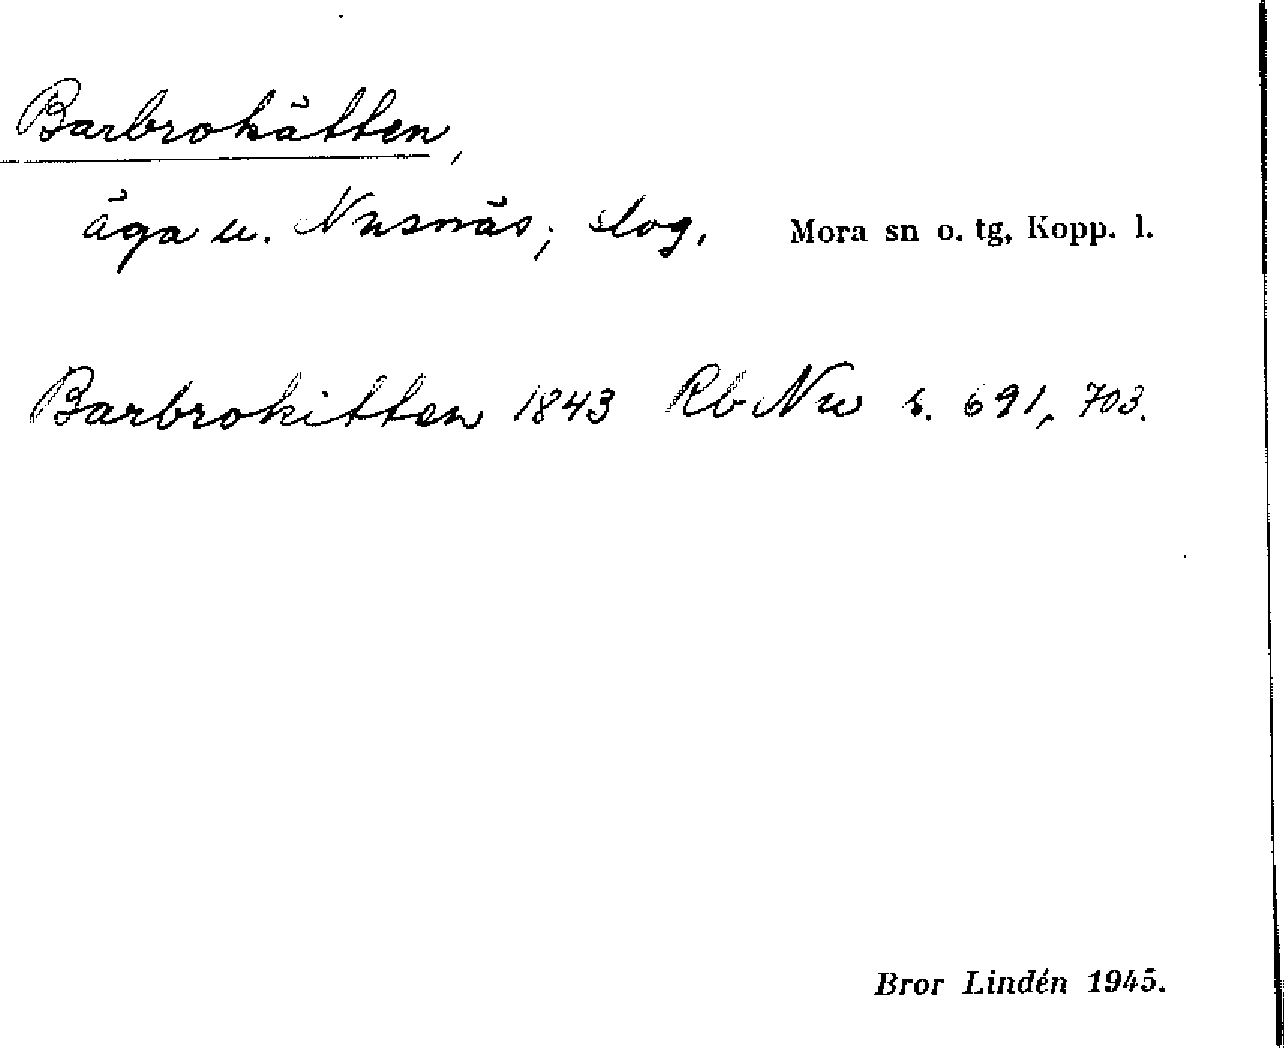 Barbrokätten,
äga u. Nusnäs; slog. Mora sn o. tg, Kopp. l.
Barbrokitten 1843 Rb Nu s. 691, 703.
Bror Lindén 1945.